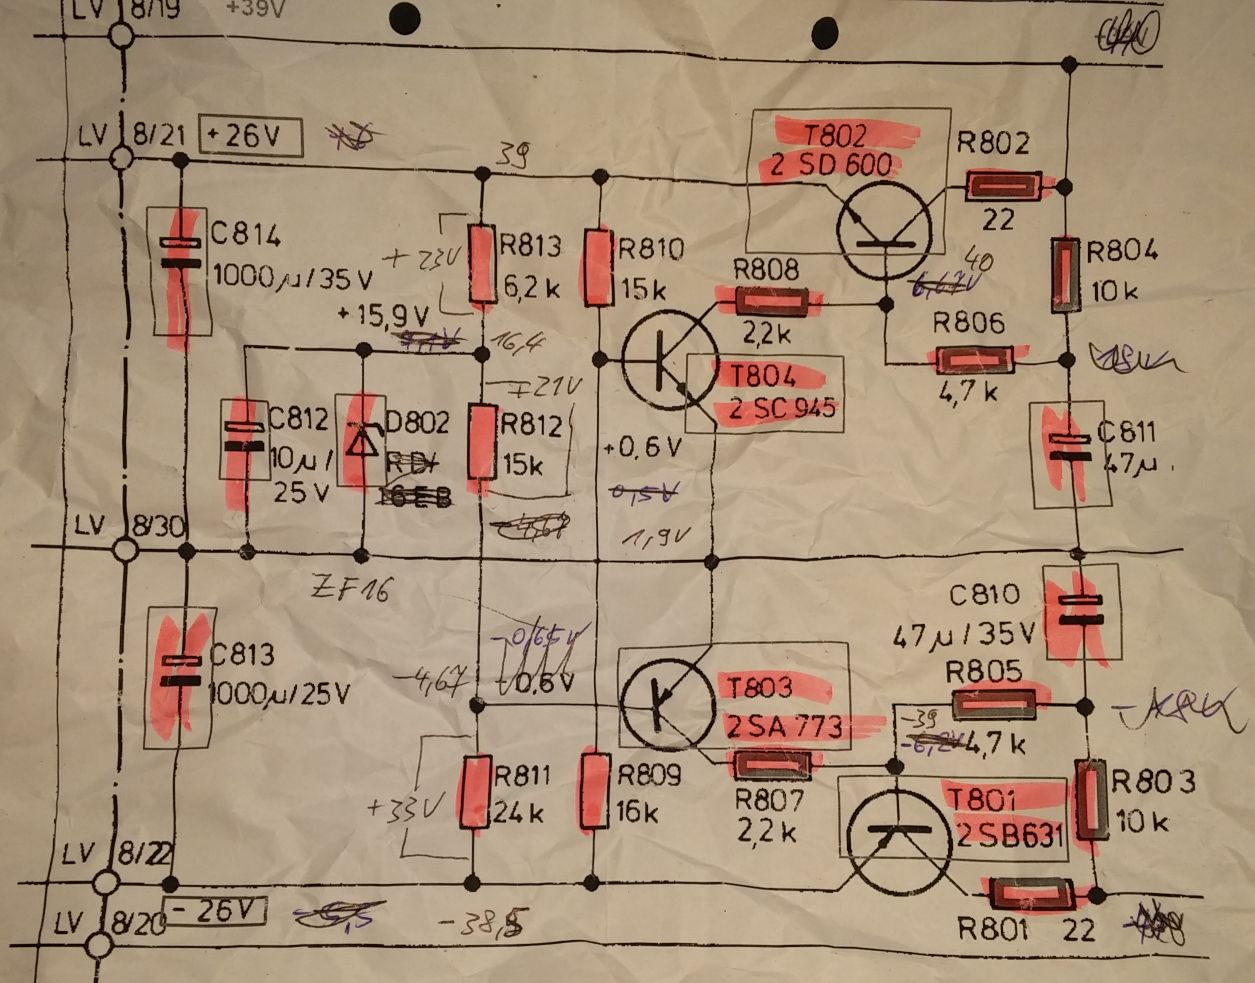 LV 8/19 +39V
LV 8/21 +26V
39
T802
2 SD 600
R802
22
C814
1000µ/35V
+23V
R813
6,2k
R810
15k
R808
2,2k
40
R804
10k
+15,9V
16,4
R806
4,7k
T804
2 SC 945
C812
10µ/
25V
D802
RD
16EB
R812
15k
+0,6V
0,5V
1,9V
C811
47µ
LV 8/30
ZF16
C810
47µ/35V
C813
1000µ/25V
-0,65V
-4,67
-0,6V
T803
2SA 773
R805
4,7k
-39
-6,2V
R811
24k
+33V
R809
16k
R807
2,2k
T801
2SB631
R803
10k
LV 8/22
-26V
-38,5
R801 22
LV 8/20